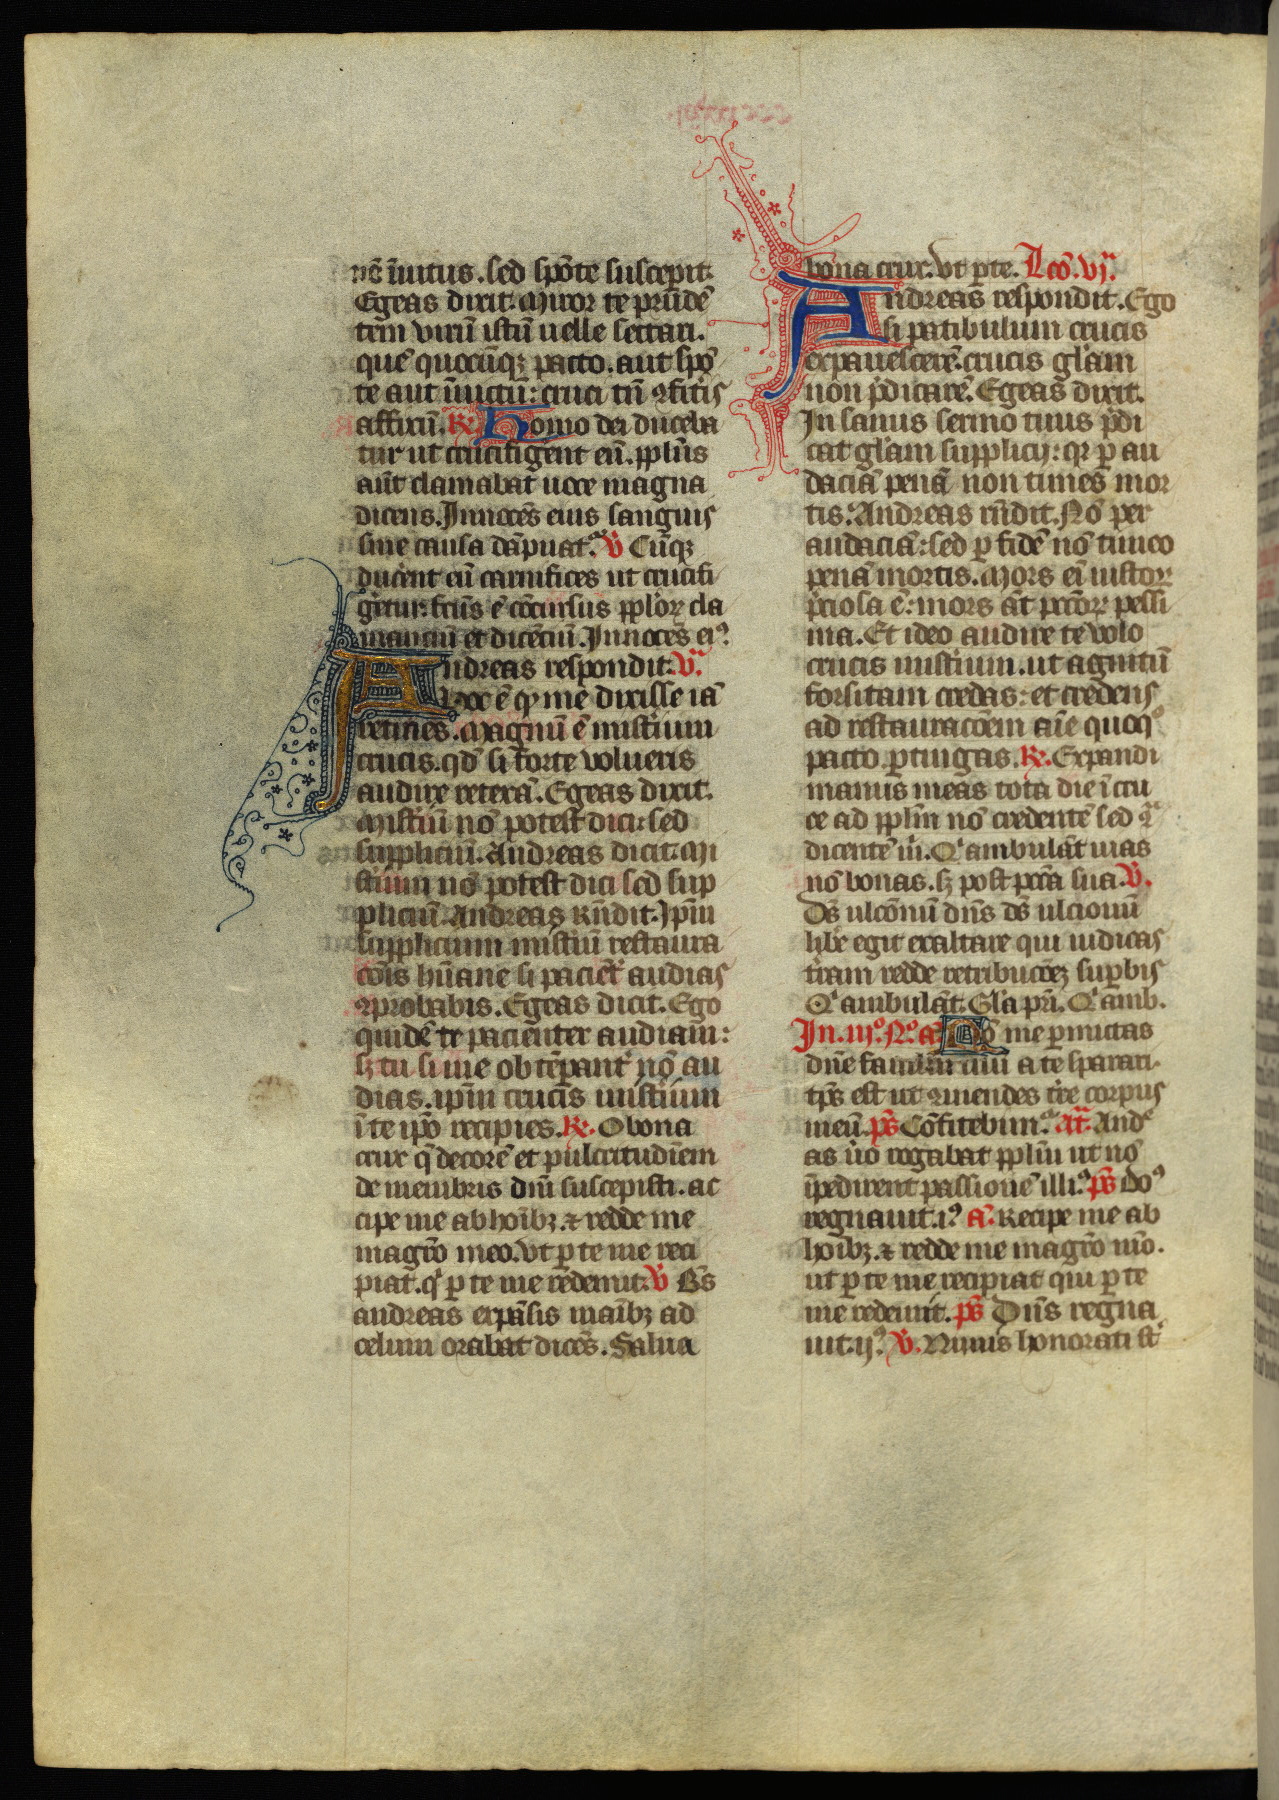 nē īuitus. sed spōte suscepit.
Egeas dixit. Miror te prudē
tem virū istū uelle sectari.
quē quocūqꝫ pacto. aut spō
te aut īuitū: cruci tn̄ ꝯfiteris
affixū. R. Homo dei duceba
tur ut crucifigerēt eū. pplūs
aūt clamabat uoce magna
dicens. Innocēs eius sanguis
sine causa dāpnat᷑. V Cūqꝫ
ducerent eū carnifices ut crucifi
geretur. fcūs ē cōcursus pploꝝ cla
mantiū et dicētiū. Innocēs ei⁹.
Andreas respondit. V.
hoc ē qd me dixisse iā
retines. Magnū ē misteriū
crucis. qd̄ si forte volueris
audire reterā. Egeas dixit.
Misteriū nō potest dici: sed
suppliciū. Andreas dicit. Mi
sterium nō potest dici sed sup
pliciū. Andreas Rn̄dit. Ip̄m
supplicium misteriū restaura
cōis hūane si pacienter audias
ꝯprobabis. Egeas dicit. Ego
quidē te pacienter audiam:
sꝫ tu si me obtēpant᷑ nō au
dias. ip̄m crucis misterium
ī te ipō recipies. R. O bona
crux q̄ decorē et pulcritudinem
de membris dnī suscepisti. ac
cipe me ab hoībꝫ. ⁊ redde me
magr̄o meo. vt ꝑ te me reci
piat. qͥ ꝑ te me redemit. V Bt̄s
andreas expāsis manibꝫ ad
celum orabat dicēs. Salua
bona crux. vt ꝑ te. Lcō. vj.
Andreas respondit. Ego
si patibulum crucis
expauescerē. crucis gl̄am
non p̄dicarē. Egeas dixit.
In sanus sermo tuus p̄di
cat gl̄am supplicij: qꝛ ꝑ au
daciā penā non times mor
tis. Andreas rn̄dit. Nō per
audaciā: sed ꝑ fidē nō timeo
penā mortis. Mors eī iustoꝝ
p̄ciosa ē: mors āt pctōꝝ pessi
ma. Et ideo audire te volo
crucis misterium. ut agnitū
forsitam credas: et credens
ad restauracōem aīe quoqͦ
pacto ꝑtingas. R. Expandi
manus meas tota die ī cru
ce ad pplm̄ nō credentē sed ꝯͣ
dicentē m̄. Qͥ ambulāt uias
nō bonas. sꝫ post pctā sua. V.
Ds̄ ulcōnū dn̄s ds̄ ulcionū
libe egit exaltare qui iudicas
t̄ram redde retribucōeꝫ suꝑbis
Qͥ ambulāt. Gl̄a pr̄i. Qͥ amb.
In. iij⁰. N⁰. a. Nō me ꝑmittas
dn̄e famlm̄ tuū a te sparari.
tp̄s est ut ꝯmendes tr̄e corpus
meū. ps̄ Cōfitebim᷑. At. Andre
as ūo rogabat pplm̄ ut nō
īpedirent passionē illi⁹. ps̄ Do⁹
regnauit. i⁹ a. Recipe me ab
hoībꝫ. ⁊ redde me magr̄o mō.
ut ꝑ te me recipiat qui ꝑ te
me redemit. ps̄ Dn̄s regna
uit. ij⁹ V. Nimis honorati st̄